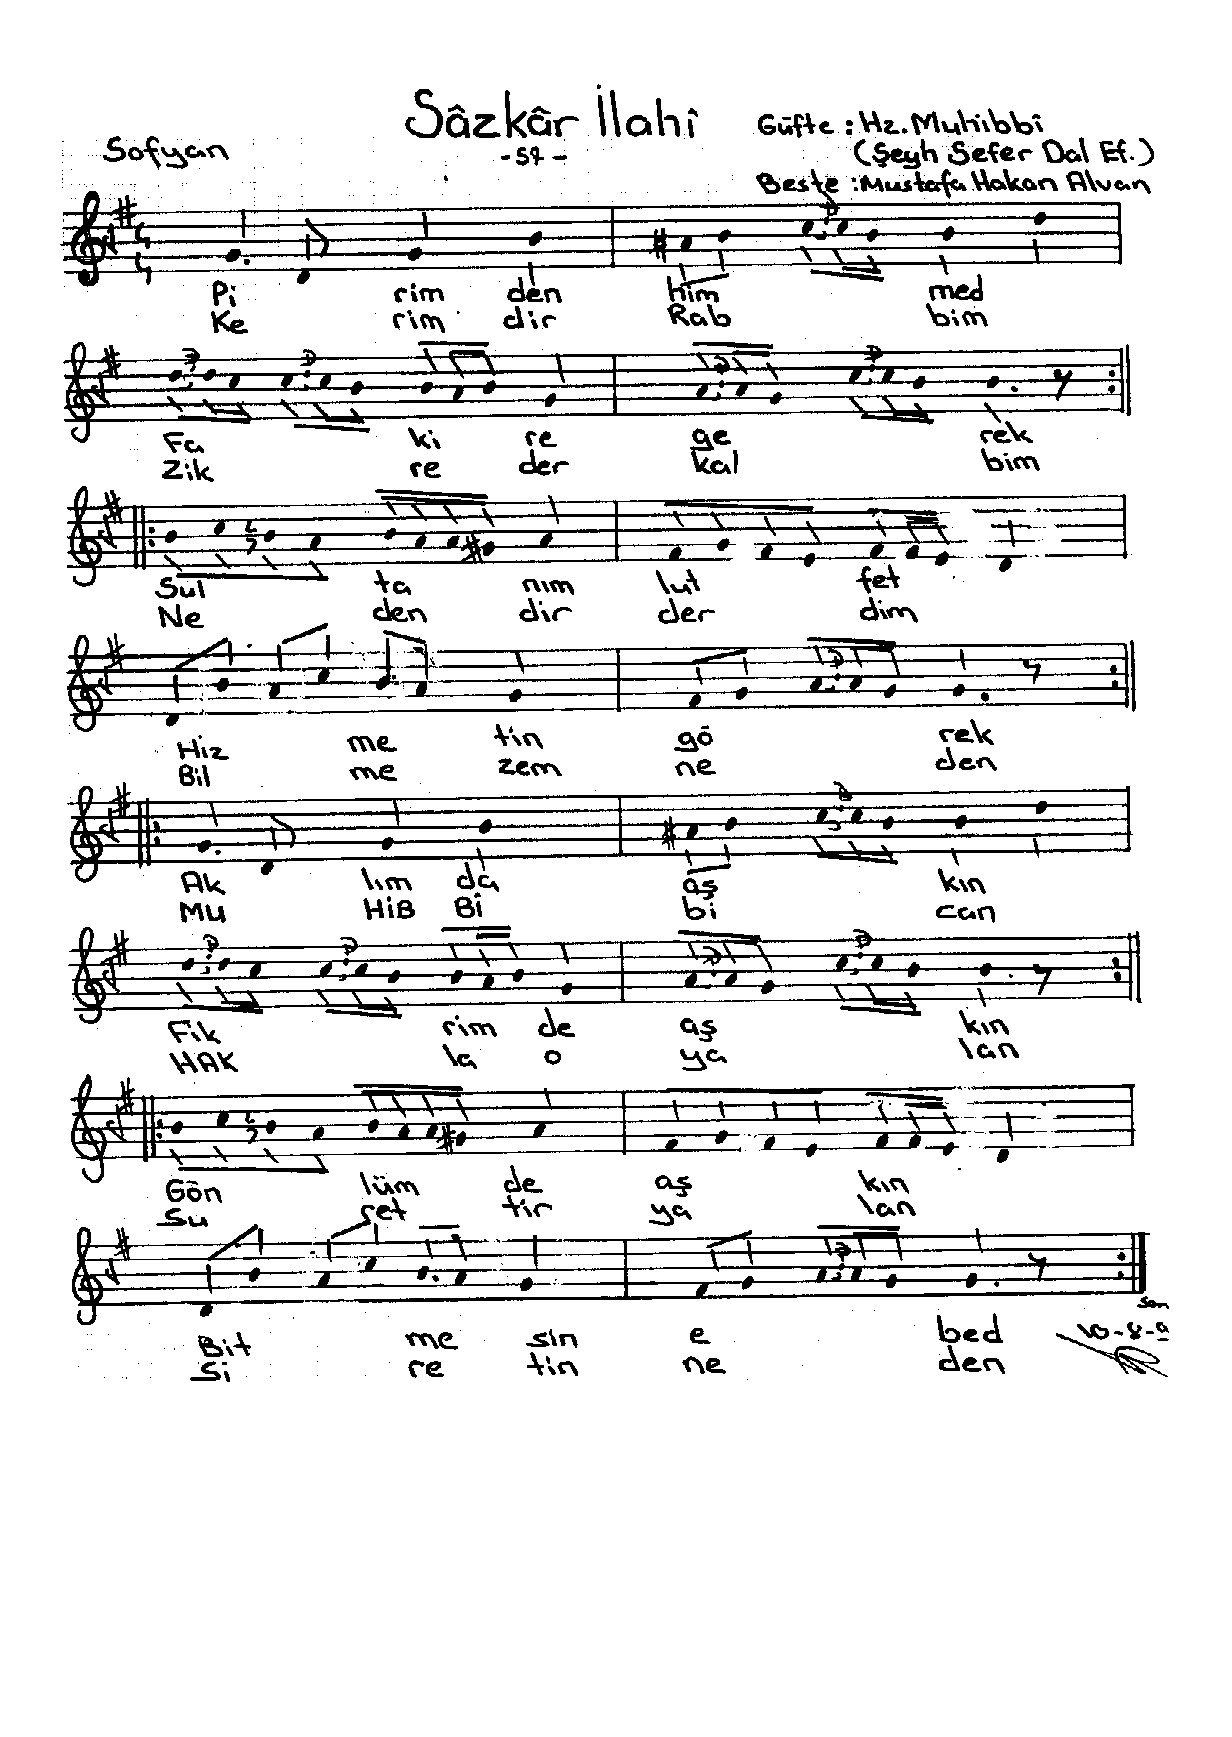 Sâzkâr İlahî
- 57 -
Sofyan
Güfte : Hz. Muhibbî
(Şeyh Sefer Dal Ef.)
Beste : Mustafa Hakan Alvan
Pi rim den him med
Ke rim dir Rab bim
Fa ki re ge rek
Zik re der kal bim
Sul ta nım lut fet
Ne den dir der dim
Hiz me tin gö rek
Bil me zem ne den
Ak lım da aş kın
MU HİB Bî bi can
Fik rim de aş kın
HAK la o ya lan
Gön lüm de aş kın
Su ret tir ya lan
Bit me sin e bed
Si re tin ne den
Son